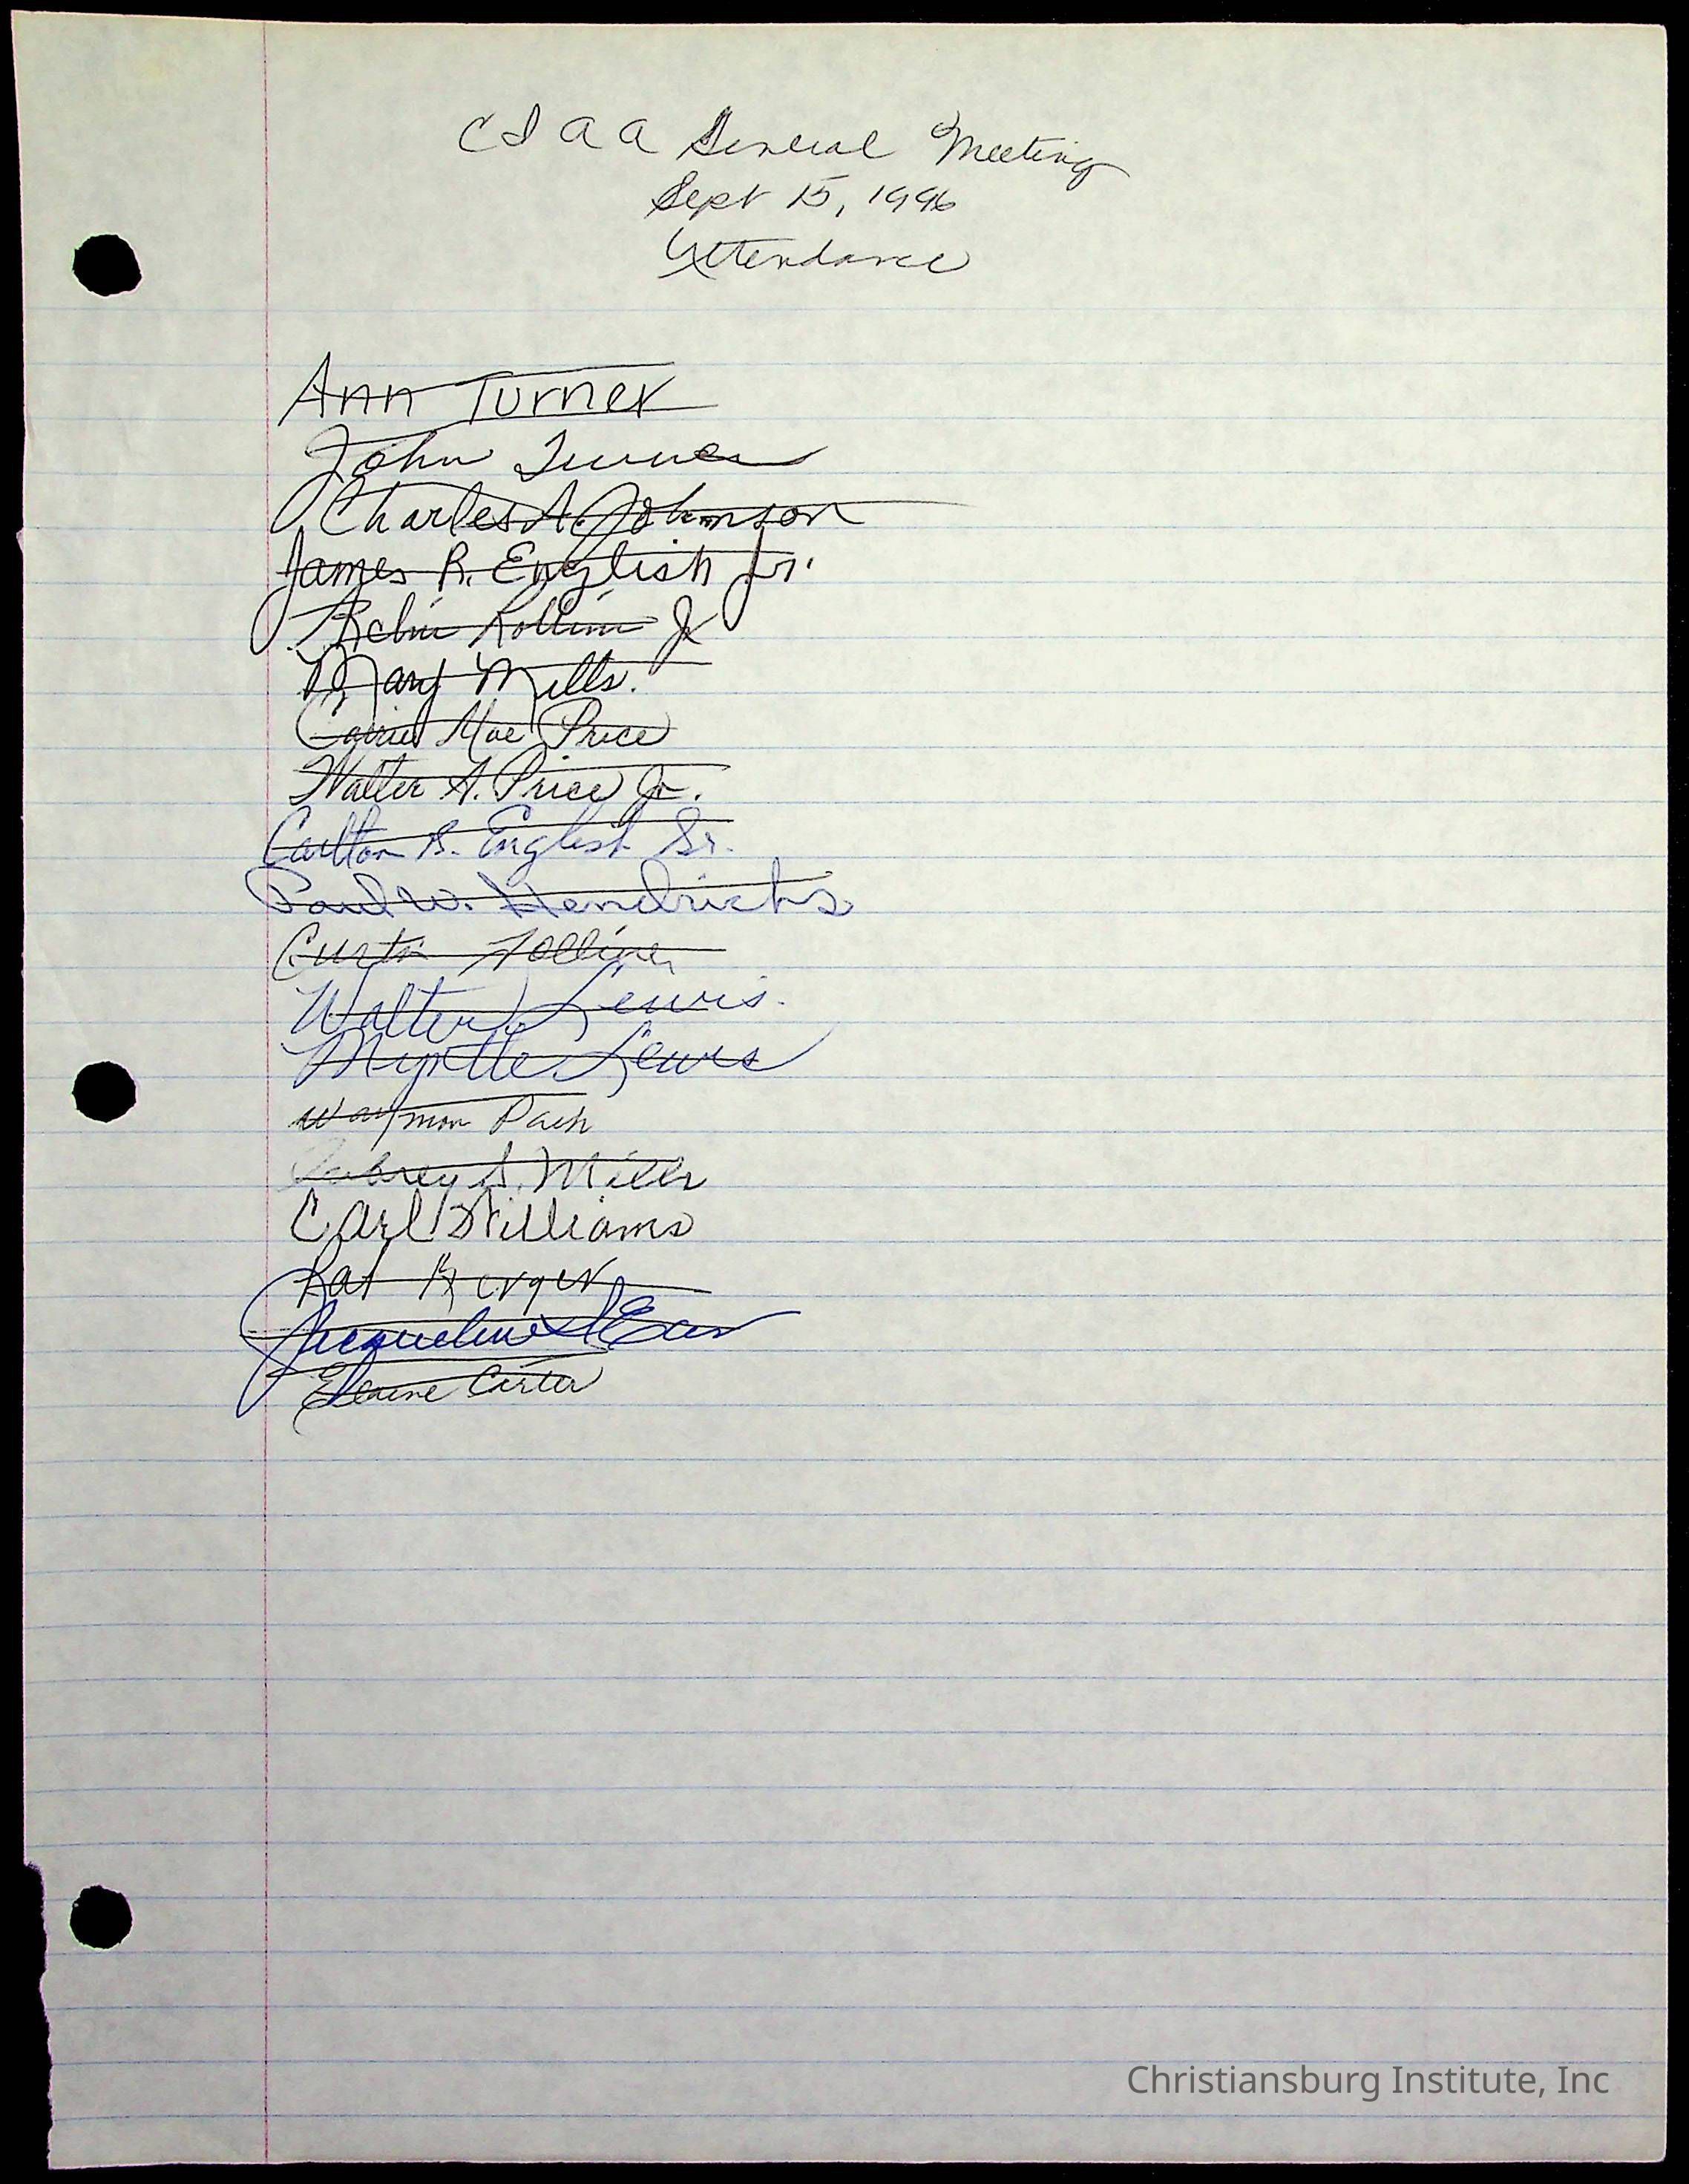 CIAA General Meeting
Sept 15, 1996
Attendance
Ann Turner
John Turner
Charles A. Johnson
James R. English Jr.
Jr
Mary Mills.
Carrie Mae Price
Walter A. Price Jr.
Carlton B. English Sr.
Paul W. Hendricks
Curtis
Walter Lewis.
Myrtle Lewis
Waymon
Aubrey S. Mills
Carl Williams
Jacqueline
Elaine Carter
Christiansburg Institute, Inc